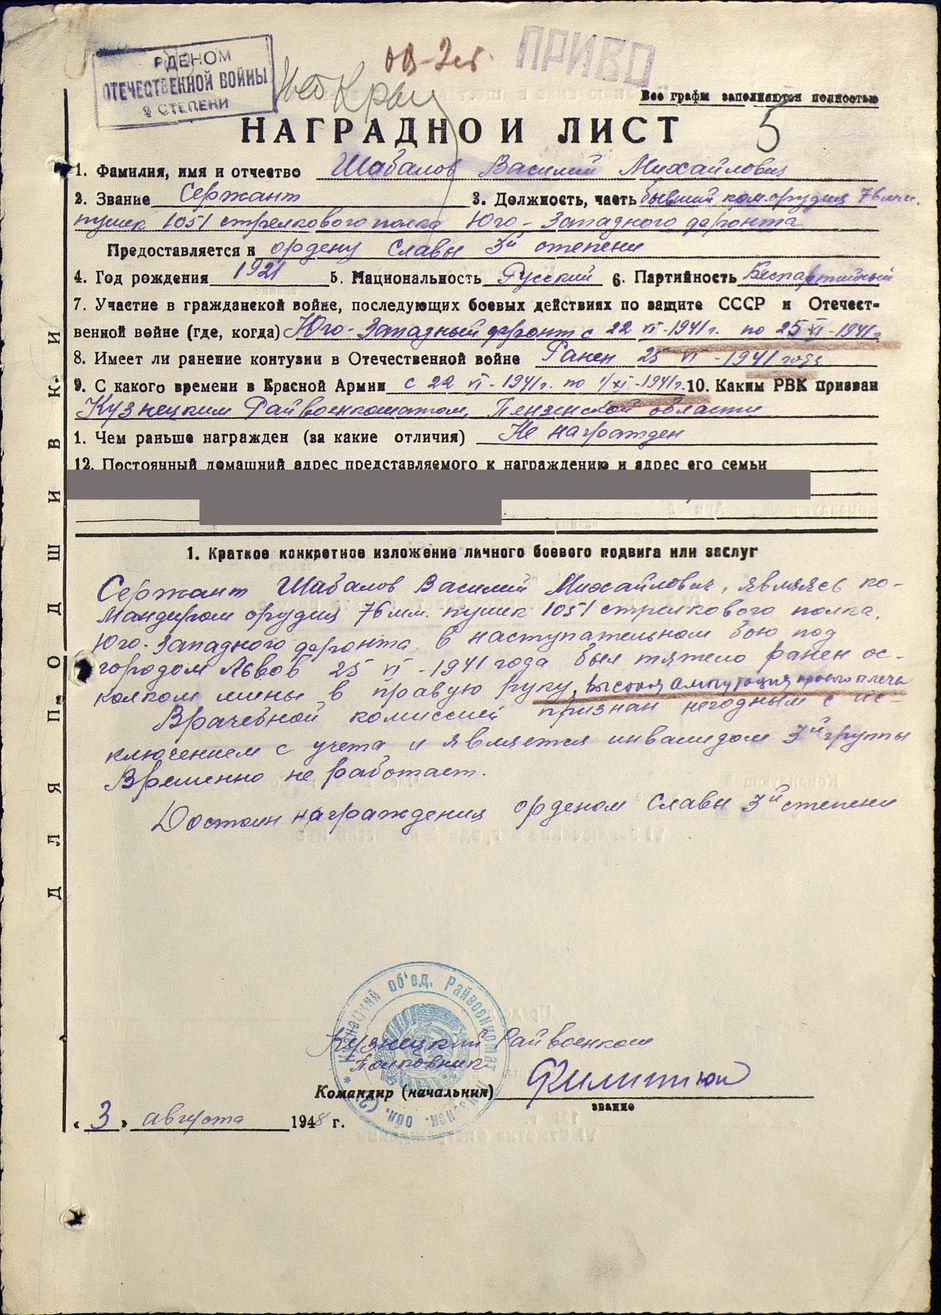 ОРДЕНОМ
ОТЕЧЕСТВЕННОЙ ВОЙНЫ
2 СТЕПЕНИ
ОВ-2ст.
ПРИВО
Все графы заполняются полностью
5
НАГРАДНОЙ ЛИСТ
1. Фамилия, имя и отчество Шабалов Василий Михайлович
2. Звание Сержант 3. Должность, часть бывший ком. орудия 76 м.м.
пушек 1051 стрелкового полка Юго-Западного фронта
Предоставляется к ордену Славы 3й степени
4. Год рождения 1921 5. Национальность Русский 6. Партийность Беспартийный
7. Участие в гражданской войне, последующих боевых действиях по защите СССР и Отечест-
венной войне (где, когда) Юго-Западный фронт с 22 VI-1941 г. по 25 VI-1941 г.
8. Имеет ли ранение контузии в Отечественной войне Ранен 25 VI-1941 года
9. С какого времени в Красной Армии с 22 VI-1941 г. по 1/XI-1941 г. 10. Каким РВК призван
Кузнецким Райвоенкоматом, Пензенской области
1. Чем раньше награжден (за какие отличия) Не награжден
12. Постоянный домашний адрес представляемого к награждению и адрес его семьи
1. Краткое конкретное изложение личного боевого подвига или заслуг
Сержант Шабалов Василий Михайлович, являясь ко-
мандиром орудия 76 мм. пушек 1051 стрелкового полка,
Юго-Западного фронта, в наступательном бою под
городом Львов 25 VI-1941 года был тяжело ранен ос-
колком мины в правую руку, высокая ампутация правого плеча
Врачебной комиссией признан негодным с ис-
ключением с учета и является инвалидом 3й группы
Временно не работает.
Достоин награждения орденом Славы 3й степени
Кузнецкий об'ед. Райвоенкомат Пензен. обл. (2)
Кузнецкий Райвоенком
Полковник
Командир (начальник)
звание
« 3 » августа 1948 г.
ДЛЯ ПОДШИВКИ